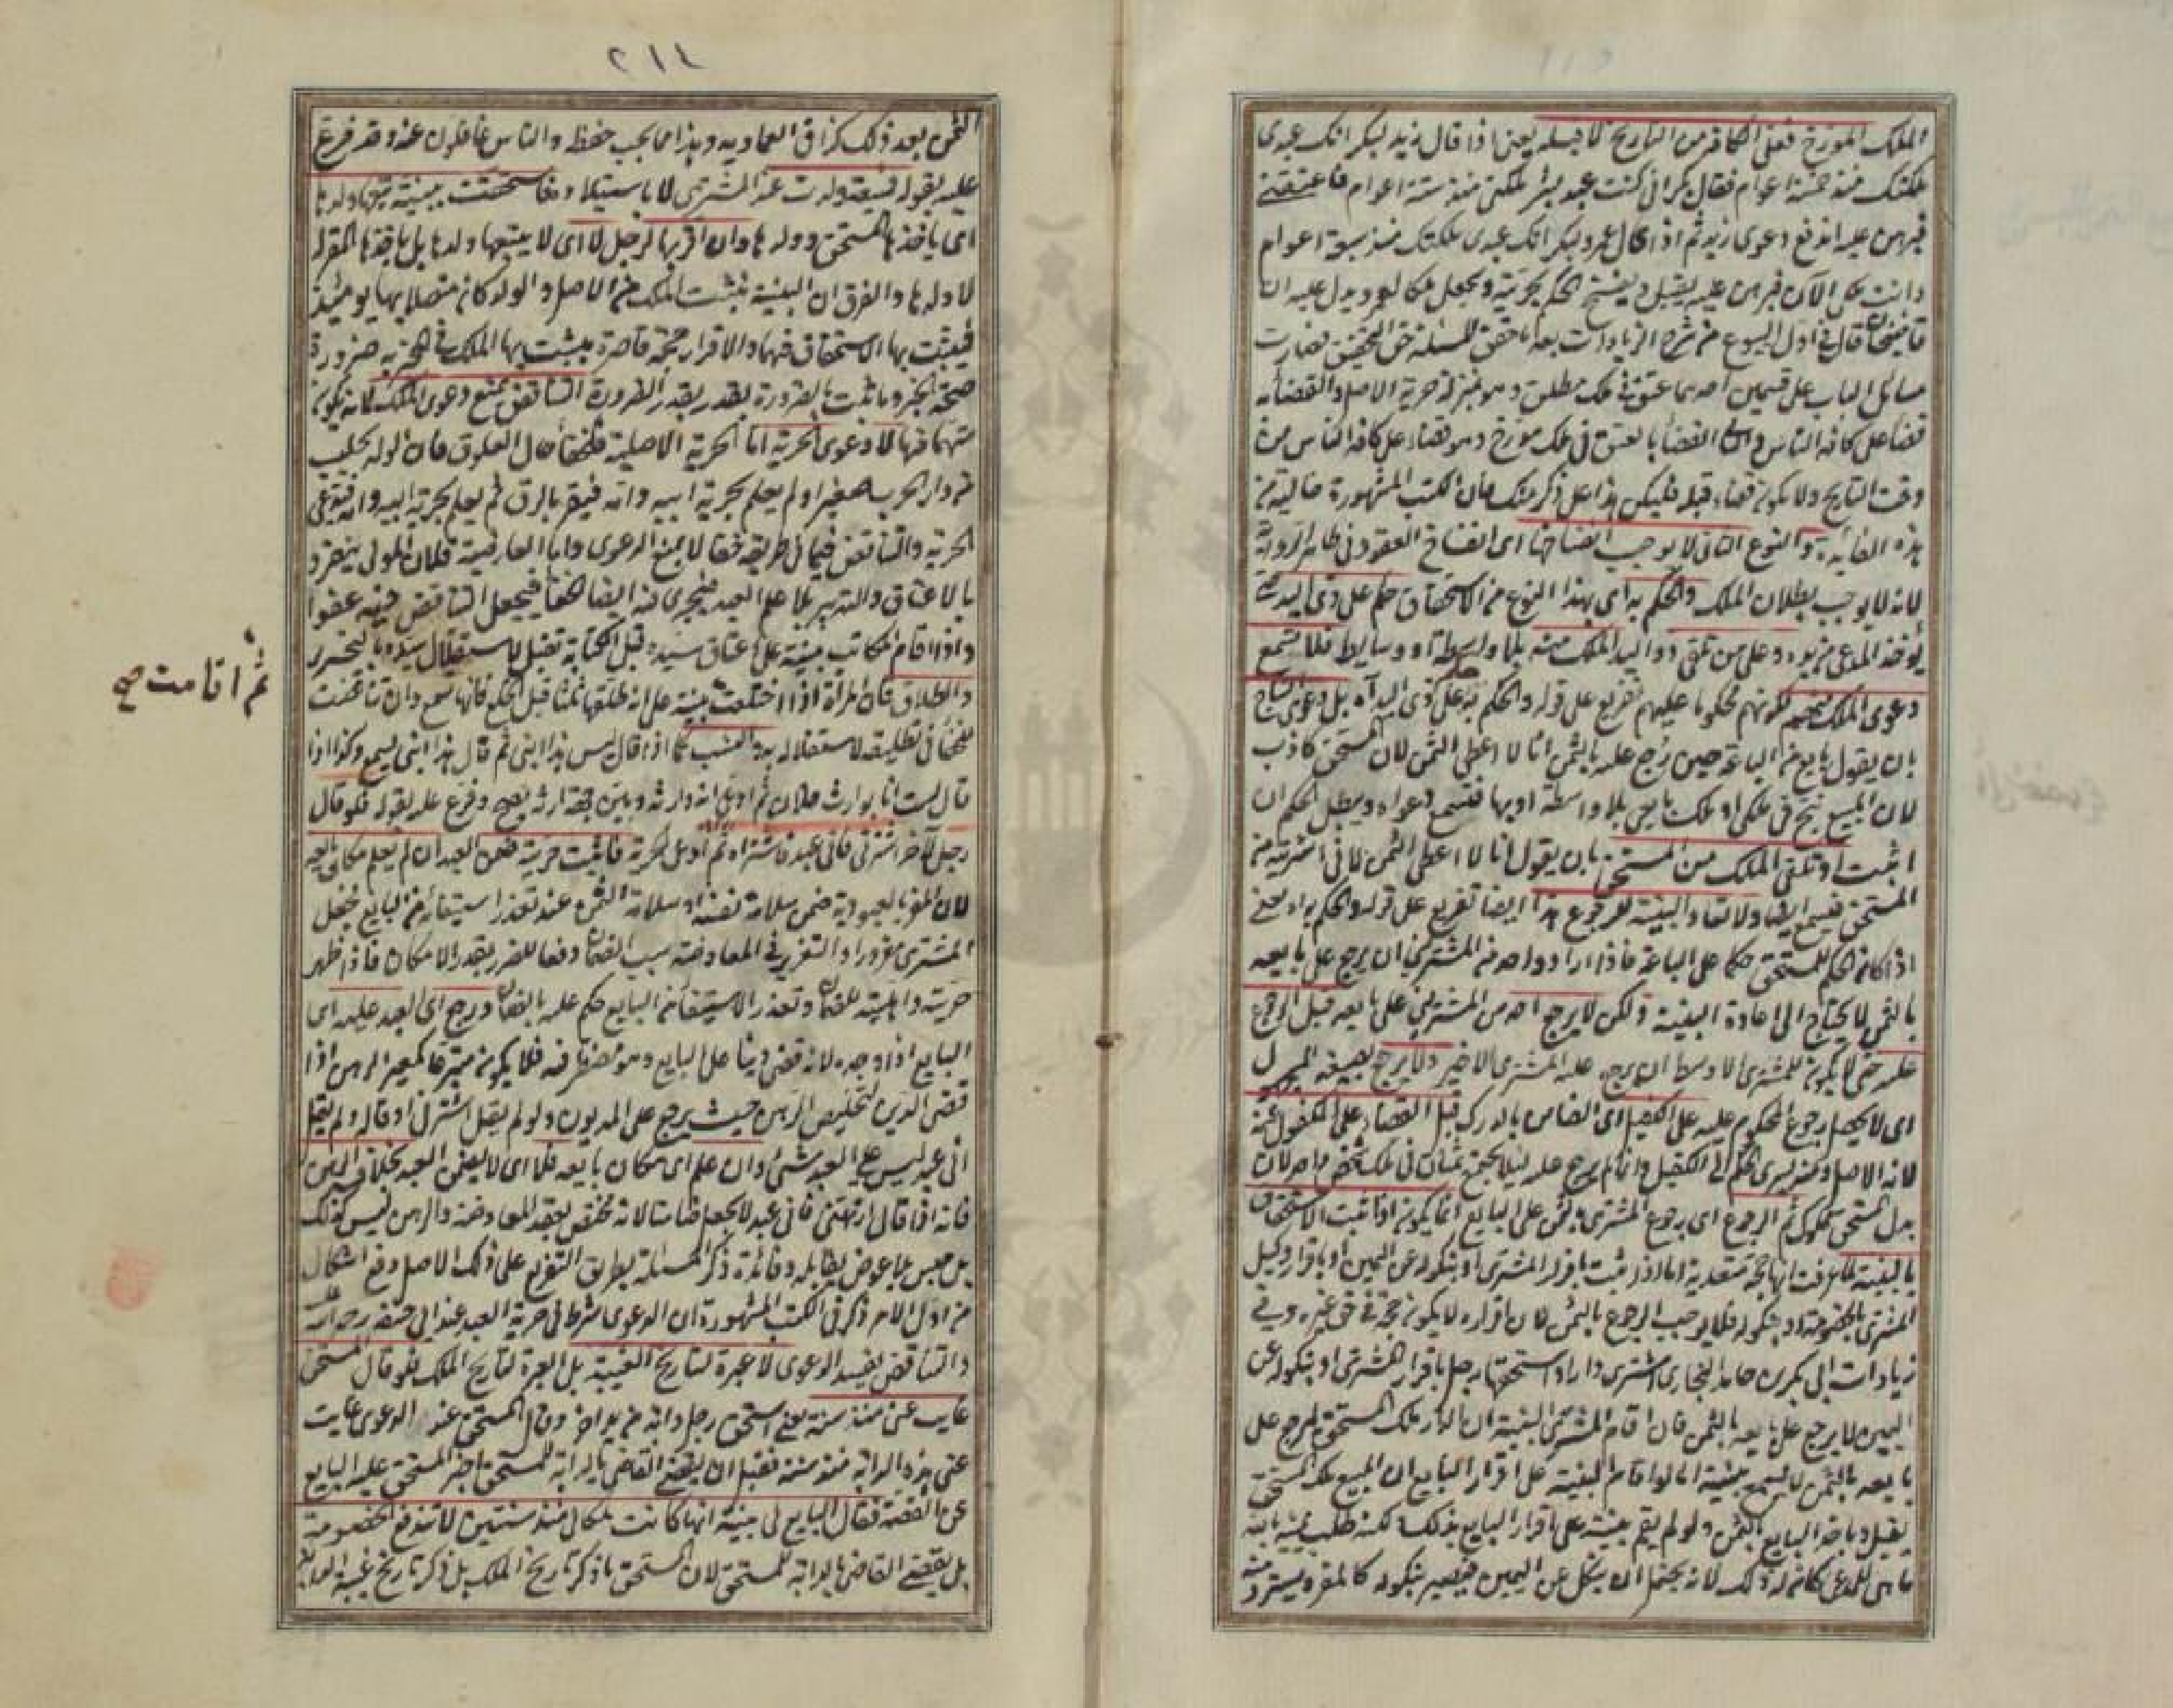 الملك المؤرخ فعلى الكافة من التاريخ لا قبله يعني اذا قال زيد لبكر انك عبدي
ملكتك منذ خمسة اعوام فقال بكر اني كنت عبد بشر ملكني منذ ستة اعوام فاعتقني
فبرهن عليه اندفع دعوى زيد ثم اذا قال عمرو لبكر انك عبدي ملكتك منذ سبعة اعوام
وانت ملكي الآن فبرهن عليه يقبل ويفسخ الحكم بحريته ويجعل ملكا لعمرو ويدل عليه ان
قاضيخان قال في اول البيوع من شرح الزيادات بعد ما حقق المسئلة حق التحقيق فصارت
مسائل الباب على قسمين احدهما عتق في ملك مطلق وهو بمنزلة حرية الاصل والقضاء به
قضاء على كافة الناس والثاني القضاء بالعتق في ملك مؤرخ وهو قضاء على كافة الناس من
وقت التاريخ ولا يكون قضاء قبله فليكن هذا على ذكر منك فان الكتب المشهورة خالية عن
هذه الفائدة والنوع الثاني لا يوجب انفساخها اى انفساخ العقود في ظاهر الرواية
لانه لا يوجب بطلان الملك والحكم به اى بهذا النوع من الاستحقاق حكم على ذى اليد حتى
يؤخذ المدعى من يده وعلى من تلقى ذو اليد الملك منه بلا واسطة او وسايط فلا تسمع
دعوى الملك منهم لكونهم محكوما عليهم تفريع على قوله والحكم به حكم على ذى اليد اه بل دعوى النتاج
بان يقول بايع من الباعة حين رجع عليه بالثمن انا لا اعطي الثمن لان المستحق كاذب
لان المبيع نتج في ملكي او ملك بايعي بلا واسطة او بها فتسمع دعواه ويبطل الحكم ان
اثبت او تلقي الملك من المستحق بان يقول انا لا اعطي الثمن لاني اشتريته من
المستحق فتسمع ايضا ولا تعاد البينة للرجوع هذا ايضا تفريع على قوله والحكم به اه يعني
اذا كان الحكم للمستحق حكما على الباعة فاذا اراد واحد من المشترين ان يرجع على بايعه
بالثمن لا يحتاج الى اعادة البينة ولكن لا يرجع احد من المشترين على بايعه قبل الرجوع
عليه حتى لا يكون للمشتري الاوسط ان يرجع عليه المشتري الاخير ولا يرجع
اى لا يحصل رجوع المحكوم عليه على الكفيل اى الضامن بالدرك قبل القضاء على المكفول عنه
لانه الاصل ومنه يسري الحكم الى الكفيل وانما لم يرجع عليه لئلا يجتمع ثمنان في ملك شخص واحد لان
بدل المستحق مملوك ثم الرجوع اى رجوع المشتري بالثمن على البايع انما يكون اذا ثبت الاستحقاق
بالبينة لما عرفت انها حجة متعدية اما اذا ثبت باقرار المشتري او بنكوله عن اليمين او باقرار وكيل
المشتري بالخصومة او بنكوله فلا يوجب الرجوع بالثمن لان اقراره لا يكون حجة في حق غيره وفي
زيادات ابي بكر بن حامد البخاري اشترى دارا واستحقها رجل باقرار المشتري او بنكوله عن
اليمين لا يرجع على بايعه بالثمن فان اقام المشتري البينة ان الدار ملك المستحق ليرجع على
بايعه بالثمن لا تسمع بينته اما لو اقام البينة على اقرار البايع ان المبيع ملك المستحق
يقبل وياخذ البايع بالثمن ولو لم يقم بينة على اقرار البايع بذلك لكنه طلب يمينه بالله
ما هي للمدعي كان له ذلك لانه يحتمل ان ينكل عن اليمين فيصير بنكوله كالمقر ويسترد منه
٢١٤
الثمن بعد ذلك كذا في العمادية وهذا مما يجب حفظه والناس غافلون عنه وقد فرغ
عليه بقوله فمبيعة ولدت عند المشتري لا باستيلاده فاستحقت ببينة يتبعها ولدها
اى ياخذها المستحق وولدها وان اقر بها لرجل لا اى لا يتبعها ولدها بل ياخذها المقر له
لا ولدها والفرق ان البينة تثبت الملك من الاصل والولد كان متصلا بها يومئذ
فيثبت بها الاستحقاق فيهما والاقرار حجة قاصرة يثبت بها الملك في المخبر به ضرورة
صحة الخبر وما ثبت بالضرورة يقدر بقدر الضرورة التناقض يمنع دعوى الملك لانه يكون
متهما فيها لا دعوى الحرية اما الحرية الاصلية فلخفاء حال العلوق فان الولد يجلب
من دار الحرب صغيرا ولم يعلم بحرية ابيه وامه فيقر بالرق ثم يعلم بحرية ابيه وامه فيدعي
الحرية والتناقض فيما في طريقه خفاء لا يمنع الدعوى واما العارضية فلان المولى ينفرد
بالاعتاق والتدبير بلا علم العبد فيجري فيه ايضا الخفاء فيجعل التناقض فيه عفوا
واذا اقام المكاتب بينة على اعتاق سيده قبل الكتابة تقبل لاستقلال سيده بالتحرير
والطلاق فان المرأة اذا اختلعت بينة على انه طلقها ثلثا قبل الخلع فانها تسمع وان تناقضت
للخفاء في تطليقه لاستقلاله به والنسب كما اذا قال ليس هذا ابني ثم قال هذا ابني يسمع وكذا اذا
قال لست انا بوارث فلان ثم ادعى انه وارثه وبين جهة ارثه يصح وفرع عليه بقوله فلو قال
رجل لآخر اشترني فاني عبد فاشتراه ثم ادعى الحرية فاثبت حريته ضمن العبد ان لم يعلم مكان بايعه
لان المقر بالعبودية ضمن سلامة نفسه او سلامة الثمن عند تعذر استيفائه من البايع فجعل
المشتري مغرورا والتغرير في المعاوضة سبب الضمان دفعا للضرر بقدر الامكان فاذا ظهر
حريته واهليته للضمان وتعذر الاستيفاء من البايع حكم عليه بالضمان ورجع اى العبد عليه اى
البايع اذا وجده لانه قضى دينا على البايع وهو مضطر فيه فلا يكون متبرعا كمعير الرهن اذا
قضى الدين لتخليص الرهن حيث يرجع على المديون ولو لم يقل اشترني او قاله ولم يقل
اني عبد ليس على العبد شيء وان علم اى مكان بايعه فلا اى لا يضمن العبد بخلاف الرهن
فانه اذا قال ارتهني فاني عبد لا يجعل ضامنا لانه مختص بعقد المعاوضة والرهن ليس كذلك
بل حبس بلا عوض يقابله وفائدة ذكر المسئلة بطريق التفريع على ذلك الاصل دفع اشكال
من اول الامر ذكر في الكتب المشهورة ان الدعوى شرط في حرية العبد عند ابي حنيفة رحمه الله
والتناقض يفسد الدعوى لا عبرة لتاريخ الغيبة بل العبرة لتاريخ الملك فلو قال المستحق
غابت عني منذ سنة يعني استحق رجل دابة من يد آخر وقال المستحق عند الدعوى غابت
عني هذه الدابة منذ سنة فقبل ان يقضي القاضي بالدابة للمستحق اخبر المستحق عليه البايع
عن القصة فقال البايع لي بينة انها كانت ملكا لي منذ سنتين لا تندفع الخصومة
بل يقضي القاضي بالدابة للمستحق لان المستحق ما ذكر تاريخ الملك بل ذكر تاريخ غيبة الدابة
ثم اقامت صح